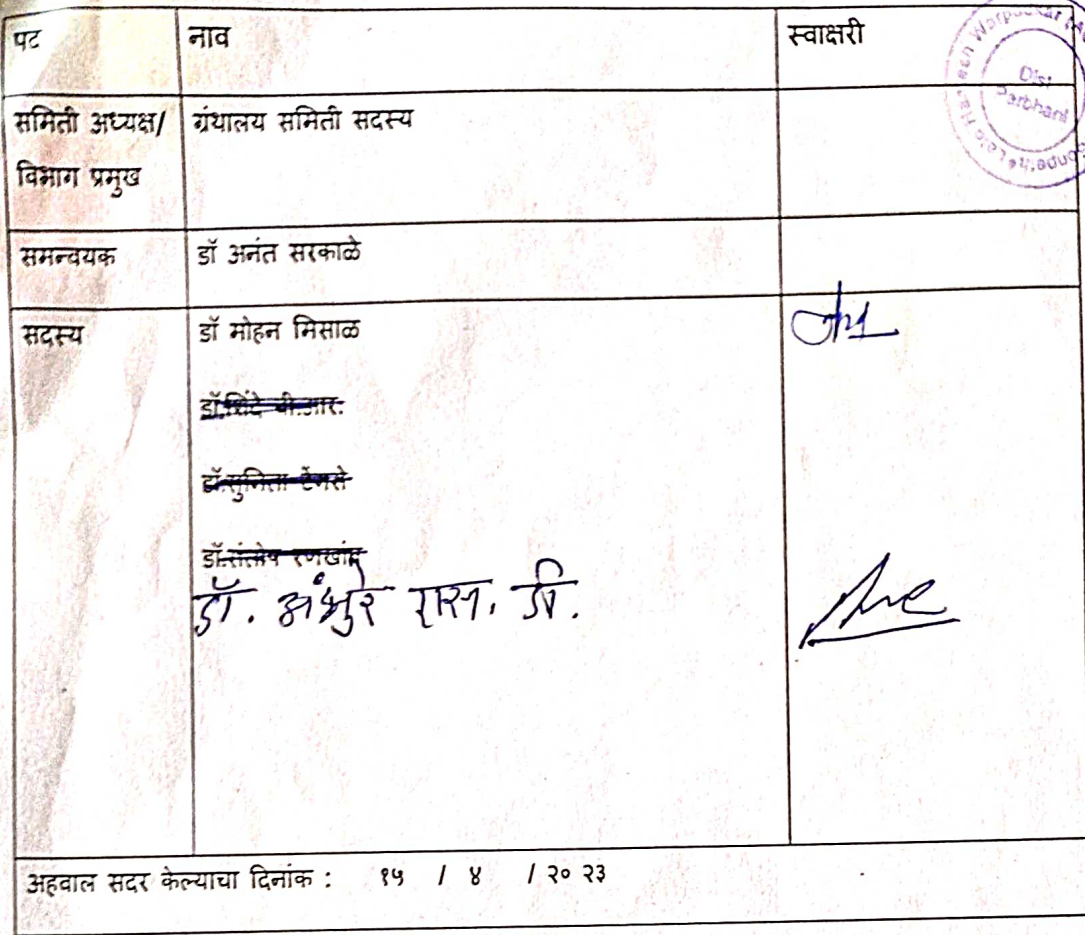 पट नाव स्वाक्षरी
समिती अध्यक्ष/ ग्रंथालय समिती सदस्य
विभाग प्रमुख
समन्वयक डॉ अनंत सरकाळे
सदस्य डॉ मोहन मिसाळ
डॉ.शिंदे बी.आर.
डॉ.सुनिता टेंगसे
डॉ.संतोष रणखांब
डॉ. अंभुरे एस. डी.
अहवाल सदर केल्याचा दिनांक : १५ / ४ / २० २३
Dist
Parbhani